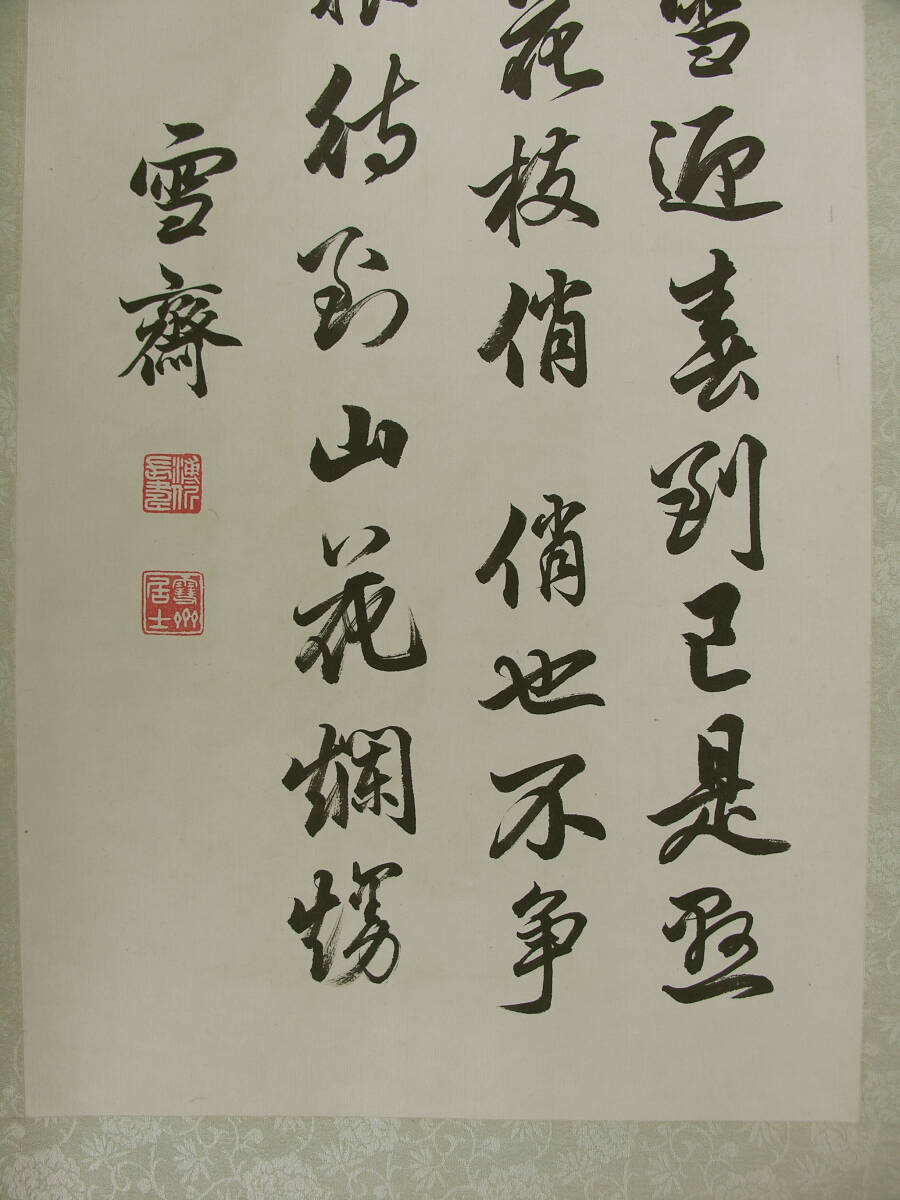 雪迎春到已是懸
花枝俏 俏也不争
報待到山花爛熳
雪齋
雪州居士